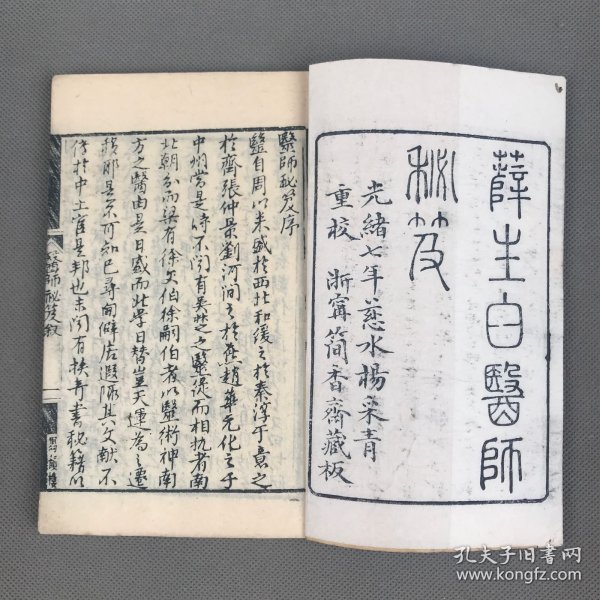 薛生白醫師
秘笈
光緒七年慈水楊采青
重校 浙甯簡香齋藏板
醫師秘笈序
醫自周以来盛於西北和緩之於秦淳于意之
於齊張仲景劉河間之於燕趙華元化之于
中州當是時不聞有吳越之醫從而相抗者南
北朝分而梁有徐文伯徐嗣伯者以醫術神南
方之醫由是日盛而北學日替豈天運為之遷
移耶是不可知已尋甸僻居遐陬其文獻不
侔於中土宦是邦也未聞有挾奇書秘籍以
醫師秘笈敘
孔夫子旧书网
www.kongfz.com